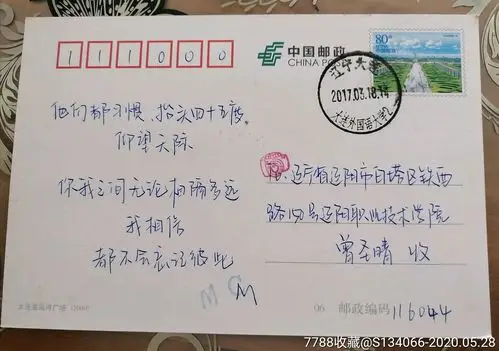 111000
中国邮政
CHINA POST
80分
辽宁大连
2017.03.18.14
大连外国语大学2
他们都习惯、抬头四十五度。
仰望天际
你我之间无论相隔多远
我相信
都不会忘记彼此
M M
辽宁省辽阳市白塔区铁西
路150号辽阳职业技术学院
曾圣晴 收
大连星海湾广场 (2000)
06 邮政编码 116044
7788收藏@S134066-2020.05.28